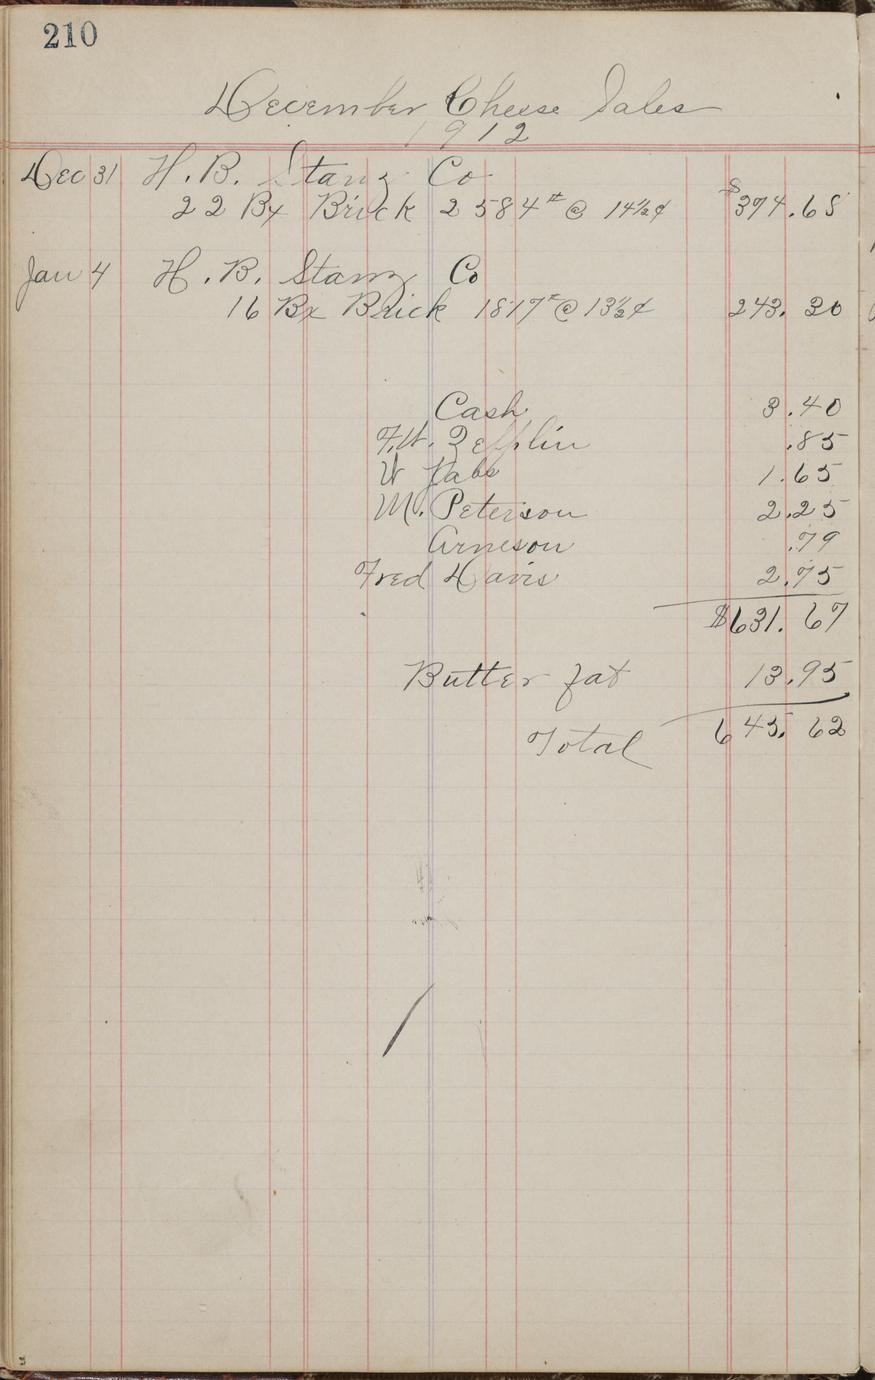 210
December Cheese Sales
1912
Dec 31 H. B. Stanz Co
22 Bx Brick 2584# @ 14½¢ $374.68
Jan 4 H. B. Stanz Co
16 Bx Brick 1817# @ 13½¢ 243.30
Cash 3.40
F.W. Zefflin .85
W Jabs 1.65
M. Peterson 2.25
Arneson .79
Fred Davis 2.75
$631.67
Butter fat 13.95
Total 645.62